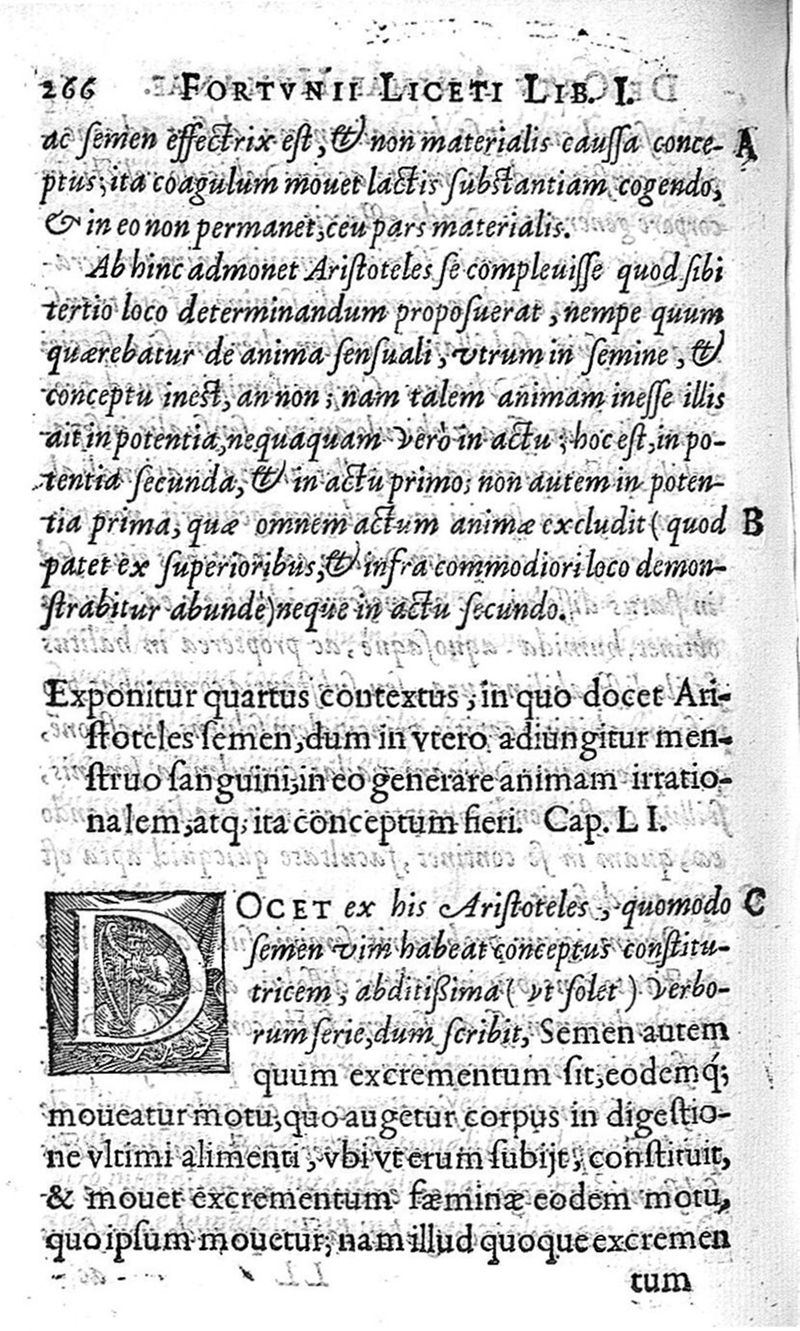 266 FORTVNII LICETI LIB. I.
ac semen effectrix est, & non materialis caussa conce- A
ptus; ita coagulum mouet lactis substantiam cogendo,
& in eo non permanet, ceu pars materialis.
Ab hinc admonet Aristoteles se compleuisse quod sibi
tertio loco determinandum proposuerat, nempe quum
quærebatur de anima sensuali, vtrum in semine, &
conceptu inest, an non; nam talem animam inesse illis
ait in potentia, nequaquam verò in actu; hoc est, in po-
tentia secunda, & in actu primo; non autem in poten-
tia prima, quæ omnem actum animæ excludit (quod B
patet ex superioribus, & infra commodiori loco demon-
strabitur abundè) neque in actu secundo.
Exponitur quartus contextus, in quo docet Ari-
stoteles semen, dum in vtero adiungitur men-
struo sanguini, in eo generare animam irratio-
nalem, atq; ita conceptum fieri. Cap. L I.
DOCET ex his Aristoteles, quomodo C
semen vim habeat conceptus constitu-
tricem, abditißima (vt solet) verbo-
rum serie, dum scribit, Semen autem
quum excrementum sit, eodemq́;
moueatur motu, quo augetur corpus in digestio-
ne vltimi alimenti, vbi vterum subijt, constituit,
& mouet excrementum fæminæ eodem motu,
quo ipsum mouetur; nam illud quoque excremen
tum